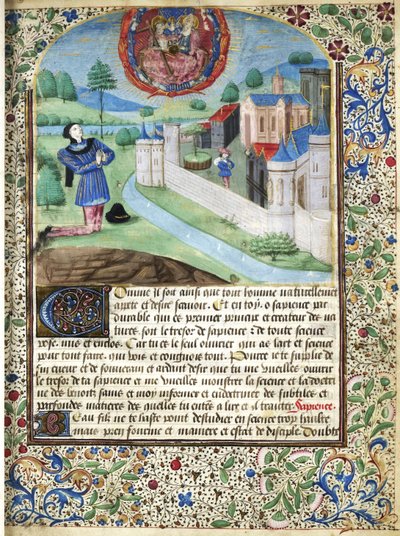 Comme il soit ainsi que tout homme naturellement
apette et desire scavoir. Et en toy o sapience par
durable qui ce premier principe et createur des na
tures soit le tresor de sapience et de toute science
et enclos. Car tu es le seul ouvrier qui as lart et science
pour tout faire. qui vois et congnois tout. Pource ie te supplie de
fin cueur et de souverain et ardant desir que tu me vueilles ouvrir
le tresor de ta sapience et me vueilles monstrer la science et la doctri
ne des et moy informer et endoctriner des subtiles et
parfondes matieres des quelles tu entens a lire et a traiter Sapience.
Beau filz ne te haste point destudier en science trop haulte
mais pren forme et maniere et estat de disciple. Doubte